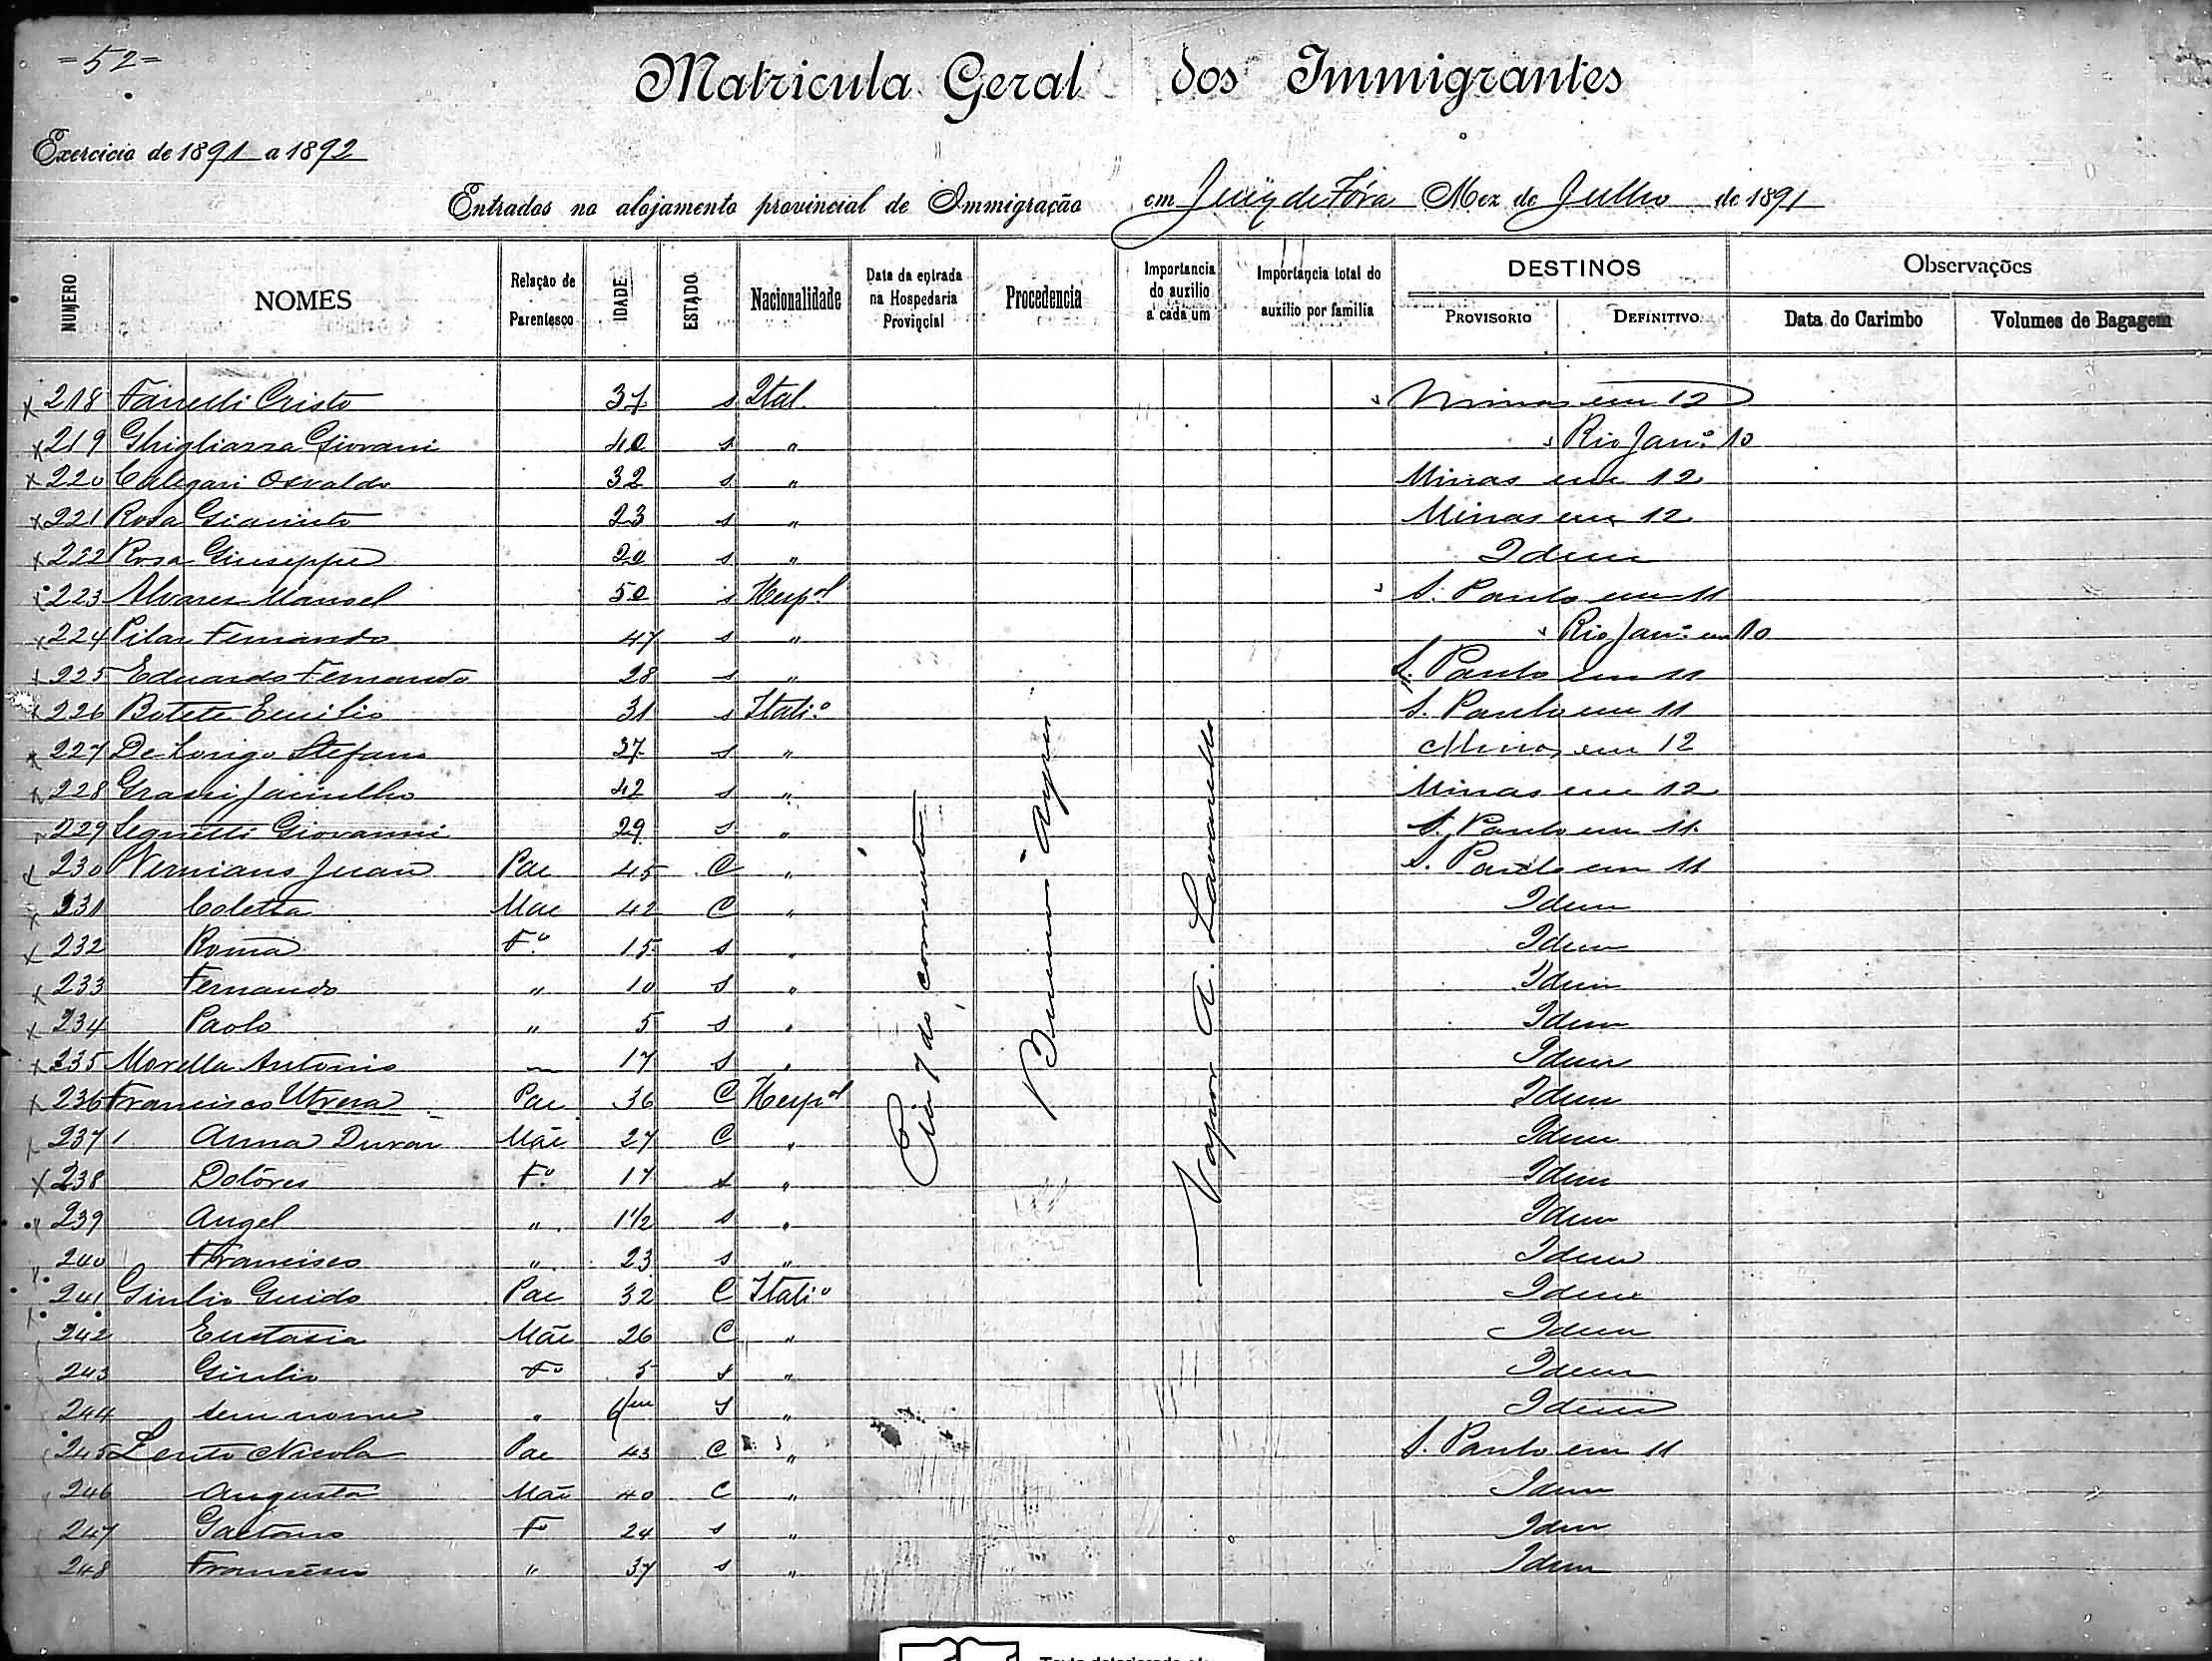 -52-
Matricula Geral dos Immigrantes
Exercicio de 1891 a 1892
Entrados no alojamento provincial de Immigração em Juiz de Fóra Mez de Julho de 1891
NUMERO NOMES Relação de Parentesco IDADE ESTADO Nacionalidade Data da entrada na Hospedaria Provincial Procedencia Importancia do auxilio a cada um Importancia total do auxilio por familia DESTINOS PROVISORIO DEFINITIVO Observações Data do Carimbo Volumes de Bagagem
x 218 Cristo 37 s Ital. Minas em 12
x 219 Ghigliazza Giovani 40 s " Rio Janº 10
x 220 Calegari Osvaldo 32 s " Minas em 12
x 221 Rosa Giacinto 23 s " Minas em 12
x 222 Rosa Giuseppe 20 s " Idem
223 Alvares Manoel 50 s S. Paulo em 11
x 224 Pilar Fernando 47 s " Rio Janº em 10
x 225 Eduardo Fernando 28 s " S. Paulo em 11
x 226 Botete Emilio 31 s Italiº S. Paulo em 11
x 227 De Longo Stefano 27 s " Minas em 12
228 Grassi Jacintho 42 s " Minas em 12
229 Giovanni 29 s " S. Paulo em 11
x 230 Juan Pae 45 C " S. Paulo em 11
x 231 Coletta Mae 42 C " Idem
x 232 Roma Fº 15 s " Idem
x 233 Fernando " 10 s " Idem
x 234 Paolo " 5 s " Idem
x 235 Morella Antonio 17 s " Idem
x 236 Francisco Utrera Pae 36 C Idem
237 Anna Duran Mãe 27 C " Idem
x 238 Dolóres Fº 17 s " Idem
239 Angel " 1 1/2 s " Idem
240 Francisco " 23 s " Idem
241 Giulio Guido Pae 32 C Italiº Idem
242 Eustasia Mãe 26 C " Idem
243 Giulio Fº 5 s " Idem
244 sem nome " 6/m s " Idem
245 Nicola Pae 43 C " S. Paulo em 11
246 Augusta Mãe 40 C " Idem
247 Gaetano Fº 24 s " Idem
248 " 37 s " Idem
Em 7 do corrente
Buenos Ayres
Vapor A. Lavarello